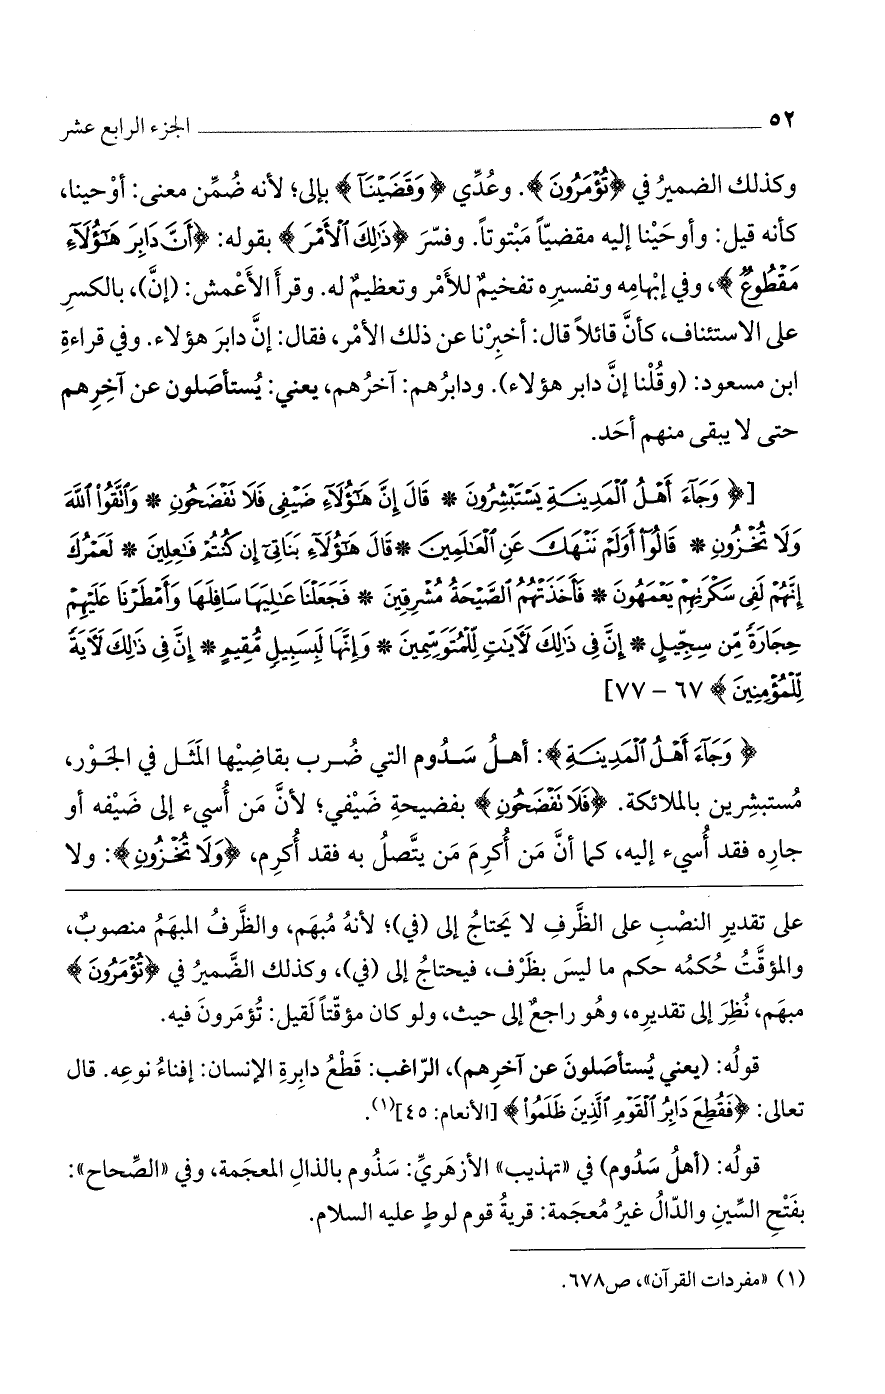 ٥٢ الجزء الرابع عشر
وكذلك الضميرُ في ﴿تُؤْمَرُونَ﴾. وعُدِّي ﴿وَقَضَيْنَآ﴾ بإلى؛ لأنه ضُمِّن معنى: أوْحينا،
كأنه قيل: وأوحَيْنا إليه مقضيّاً مَبْتوتاً. وفسّرَ ﴿ذَٰلِكَ ٱلْأَمْرَ﴾ بقوله: ﴿أَنَّ دَابِرَ هَٰٓؤُلَآءِ
مَقْطُوعٌ﴾، وفي إبْهامِه وتفسيرِه تفخيمٌ للأمْر وتعظيمٌ له. وقرأ الأعْمش: (إنَّ)، بالكسرِ
على الاستئناف، كأنَّ قائلاً قال: أخبِرْنا عن ذلك الأمْر، فقال: إنَّ دابرَ هؤلاء. وفي قراءةِ
ابن مسعود: (وقُلْنا إنَّ دابر هؤلاء). ودابرُهم: آخرُهم، يعني: يُستأصَلون عن آخِرِهم
حتى لا يبقى منهم أحَد.
[﴿وَجَآءَ أَهْلُ ٱلْمَدِينَةِ يَسْتَبْشِرُونَ * قَالَ إِنَّ هَٰٓؤُلَآءِ ضَيْفِى فَلَا تَفْضَحُونِ * وَٱتَّقُوا۟ ٱللَّهَ
وَلَا تُخْزُونِ * قَالُوٓا۟ أَوَلَمْ نَنْهَكَ عَنِ ٱلْعَٰلَمِينَ * قَالَ هَٰٓؤُلَآءِ بَنَاتِىٓ إِن كُنتُمْ فَٰعِلِينَ * لَعَمْرُكَ
إِنَّهُمْ لَفِى سَكْرَتِهِمْ يَعْمَهُونَ * فَأَخَذَتْهُمُ ٱلصَّيْحَةُ مُشْرِقِينَ * فَجَعَلْنَا عَٰلِيَهَا سَافِلَهَا وَأَمْطَرْنَا عَلَيْهِمْ
حِجَارَةً مِّن سِجِّيلٍ * إِنَّ فِى ذَٰلِكَ لَءَايَٰتٍ لِّلْمُتَوَسِّمِينَ * وَإِنَّهَا لَبِسَبِيلٍ مُّقِيمٍ * إِنَّ فِى ذَٰلِكَ لَءَايَةً
لِّلْمُؤْمِنِينَ﴾ ٦٧ - ٧٧]
﴿وَجَآءَ أَهْلُ ٱلْمَدِينَةِ﴾: أهلُ سَدُوم التي ضُرب بقاضِيْها المَثَل في الجَوْر،
مُستبشِرين بالملائكة. ﴿فَلَا تَفْضَحُونِ﴾ بفضيحةِ ضَيْفي؛ لأنَّ مَن أُسيء إلى ضَيْفه أو
جارِه فقد أُسيء إليه، كما أنَّ مَن أُكرِمَ مَن يتَّصلُ به فقد أُكرِم، ﴿وَلَا تُخْزُونِ﴾: ولا
على تقديرِ النصْبِ على الظَّرفِ لا يَحتاجُ إلى (في)؛ لأنهُ مُبهَم، والظَّرفُ المبهَمُ منصوبٌ،
والمؤقَّتُ حُكمُه حكم ما ليسَ بظَرْف، فيحتاجُ إلى (في)، وكذلك الضَّميرُ في ﴿تُؤْمَرُونَ﴾
مبهَم، نُظِرَ إلى تقديرِه، وهُو راجعٌ إلى حيث، ولو كان مؤقّتاً لَقيل: تُؤمَرونَ فيه.
قولُه: (يعني يُستأصَلونَ عن آخرِهم)، الرّاغب: قَطْعُ دابِرةِ الإنسان: إفناءُ نوعِه. قال
تعالى: ﴿فَقُطِعَ دَابِرُ ٱلْقَوْمِ ٱلَّذِينَ ظَلَمُوا۟﴾ [الأنعام: ٤٥](١).
قولُه: (أهلُ سَدُوم) في «تهذيب» الأزهَريِّ: سَذُوم بالذالِ المعجَمة، وفي «الصِّحاح»:
بفَتْحِ السِّينِ والدّالُ غيرُ مُعجَمة: قريةُ قوم لوطٍ عليه السلام.
(١) «مفردات القرآن»، ص٦٧٨.